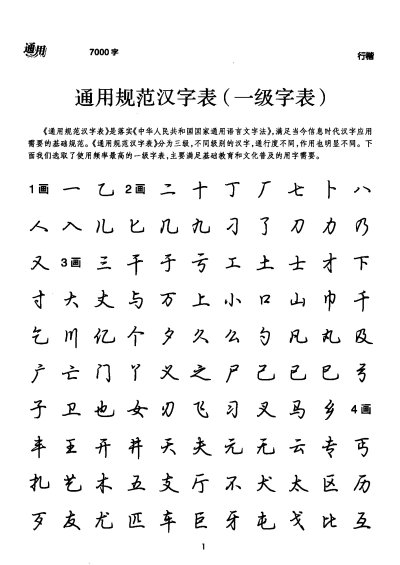 通用 7000字 行楷
通用规范汉字表(一级字表)
《通用规范汉字表》是落实《中华人民共和国国家通用语言文字法》,满足当今信息时代汉字应用
需要的基础规范。《通用规范汉字表》分为三级,不同级别的汉字,通行度不同,作用也明显不同。下
面我们选取了使用频率最高的一级字表,主要满足基础教育和文化普及的用字需要。
1画 一 乙 2画 二 十 丁 厂 七 卜 八
人 入 儿 匕 几 九 刁 了 刀 力 乃
又 3画 三 干 于 亏 工 土 士 才 下
寸 大 丈 与 万 上 小 口 山 巾 千
乞 川 亿 个 夕 久 么 勺 凡 丸 及
广 亡 门 丫 义 之 尸 己 已 巳 弓
子 卫 也 女 刃 飞 习 叉 马 乡 4画
丰 王 开 井 天 夫 元 无 云 专 丐
扎 艺 木 五 支 厅 不 犬 太 区 历
歹 友 尤 匹 车 巨 牙 屯 戈 比 互
1